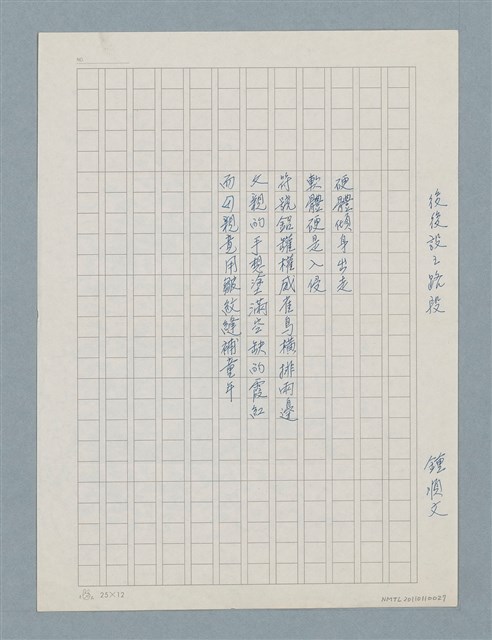 後後設之路段
鍾順文
硬體傾身出走
軟體硬是入侵
符號鋁罐權威雀鳥橫排兩邊
父親的手想塗滿空缺的霞紅
而母親竟用皺紋縫補童年
№
25×12
NMTL20110110027